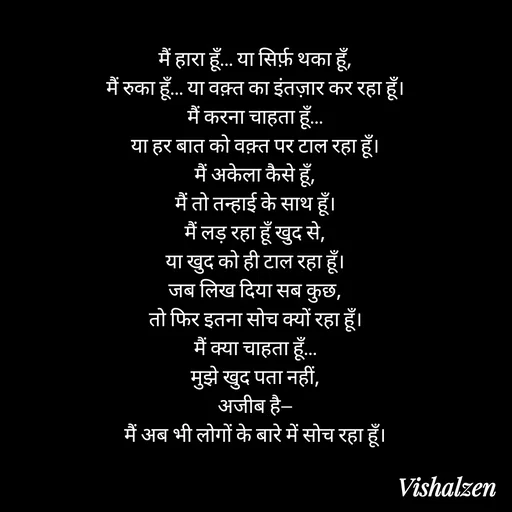 मैं हारा हूँ... या सिर्फ़ थका हूँ,
मैं रुका हूँ... या वक़्त का इंतज़ार कर रहा हूँ।
मैं करना चाहता हूँ...
या हर बात को वक़्त पर टाल रहा हूँ।
मैं अकेला कैसे हूँ,
मैं तो तन्हाई के साथ हूँ।
मैं लड़ रहा हूँ खुद से,
या खुद को ही टाल रहा हूँ।
जब लिख दिया सब कुछ,
तो फिर इतना सोच क्यों रहा हूँ।
मैं क्या चाहता हूँ...
मुझे खुद पता नहीं,
अजीब है—
मैं अब भी लोगों के बारे में सोच रहा हूँ।
Vishalzen